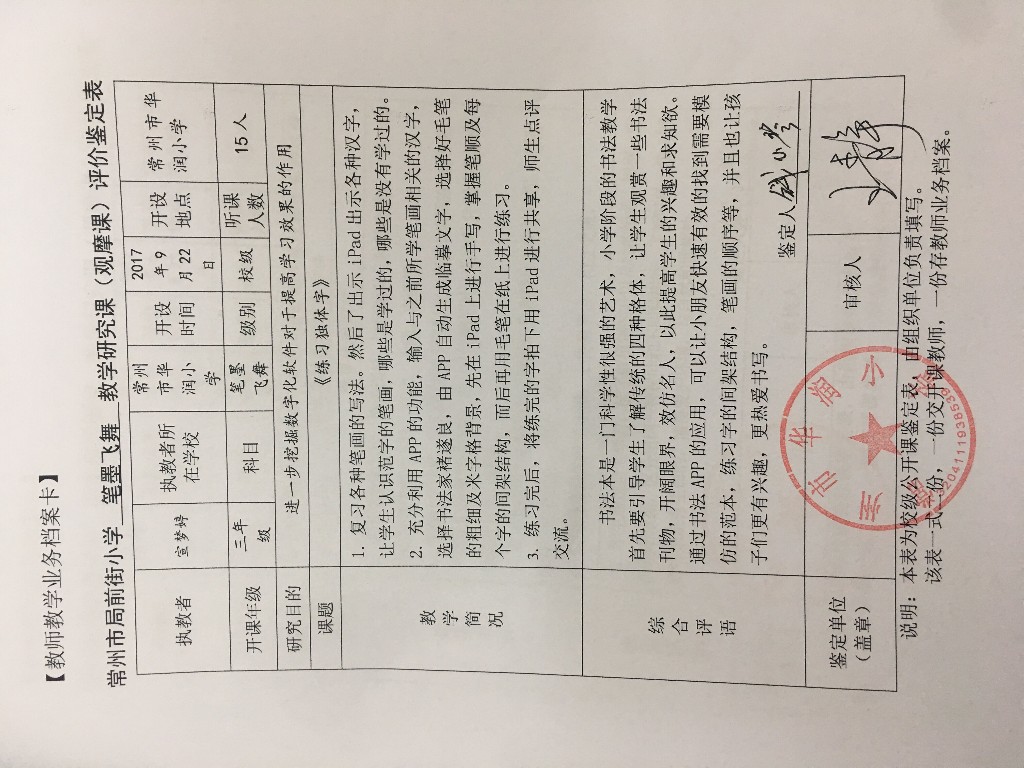 【教师教学业务档案卡】
常州市局前街小学 笔墨飞舞 教学研究课（观摩课）评价鉴定表
执教者 宣梦婷 执教者所在学校 常州市华润小学 开设时间 2017年9月22日 开设地点 常州市华润小学
开课年级 三年级 科目 笔墨飞舞 级别 校级 听课人数 15人
研究目的 进一步挖掘数字化软件对于提高学习效果的作用
课题 《练习独体字》
教学简况
1. 复习各种笔画的写法。然后了出示 iPad 出示各种汉字，
让学生认识范字的笔画，哪些是学过的，哪些是没有学过的。
2. 充分利用 APP 的功能，输入与之前所学笔画相关的汉字，
选择书法家褚遂良，由 APP 自动生成临摹文字，选择好毛笔
的粗细及米字格背景，先在 iPad 上进行手写，掌握笔顺及每
个字的间架结构，而后再用毛笔在纸上进行练习。
3. 练习完后，将练完的字拍下用 iPad 进行共享，师生点评
交流。
综合评语
书法本是一门科学性很强的艺术，小学阶段的书法教学
首先要引导学生了解传统的四种格体，让学生观赏一些书法
刊物，开阔眼界，效仿名人，以此提高学生的兴趣和求知欲。
通过书法 APP 的应用，可以让小朋友快速有效的找到需要模
仿的范本，练习字的间架结构，笔画的顺序等，并且也让孩
子们更有兴趣，更热爱书写。
鉴定人
鉴定单位（盖章）
审核人
说明：本表为校级公开课鉴定表，由组织单位负责填写。
该表一式三份，一份交开课教师，一份存教师业务档案。